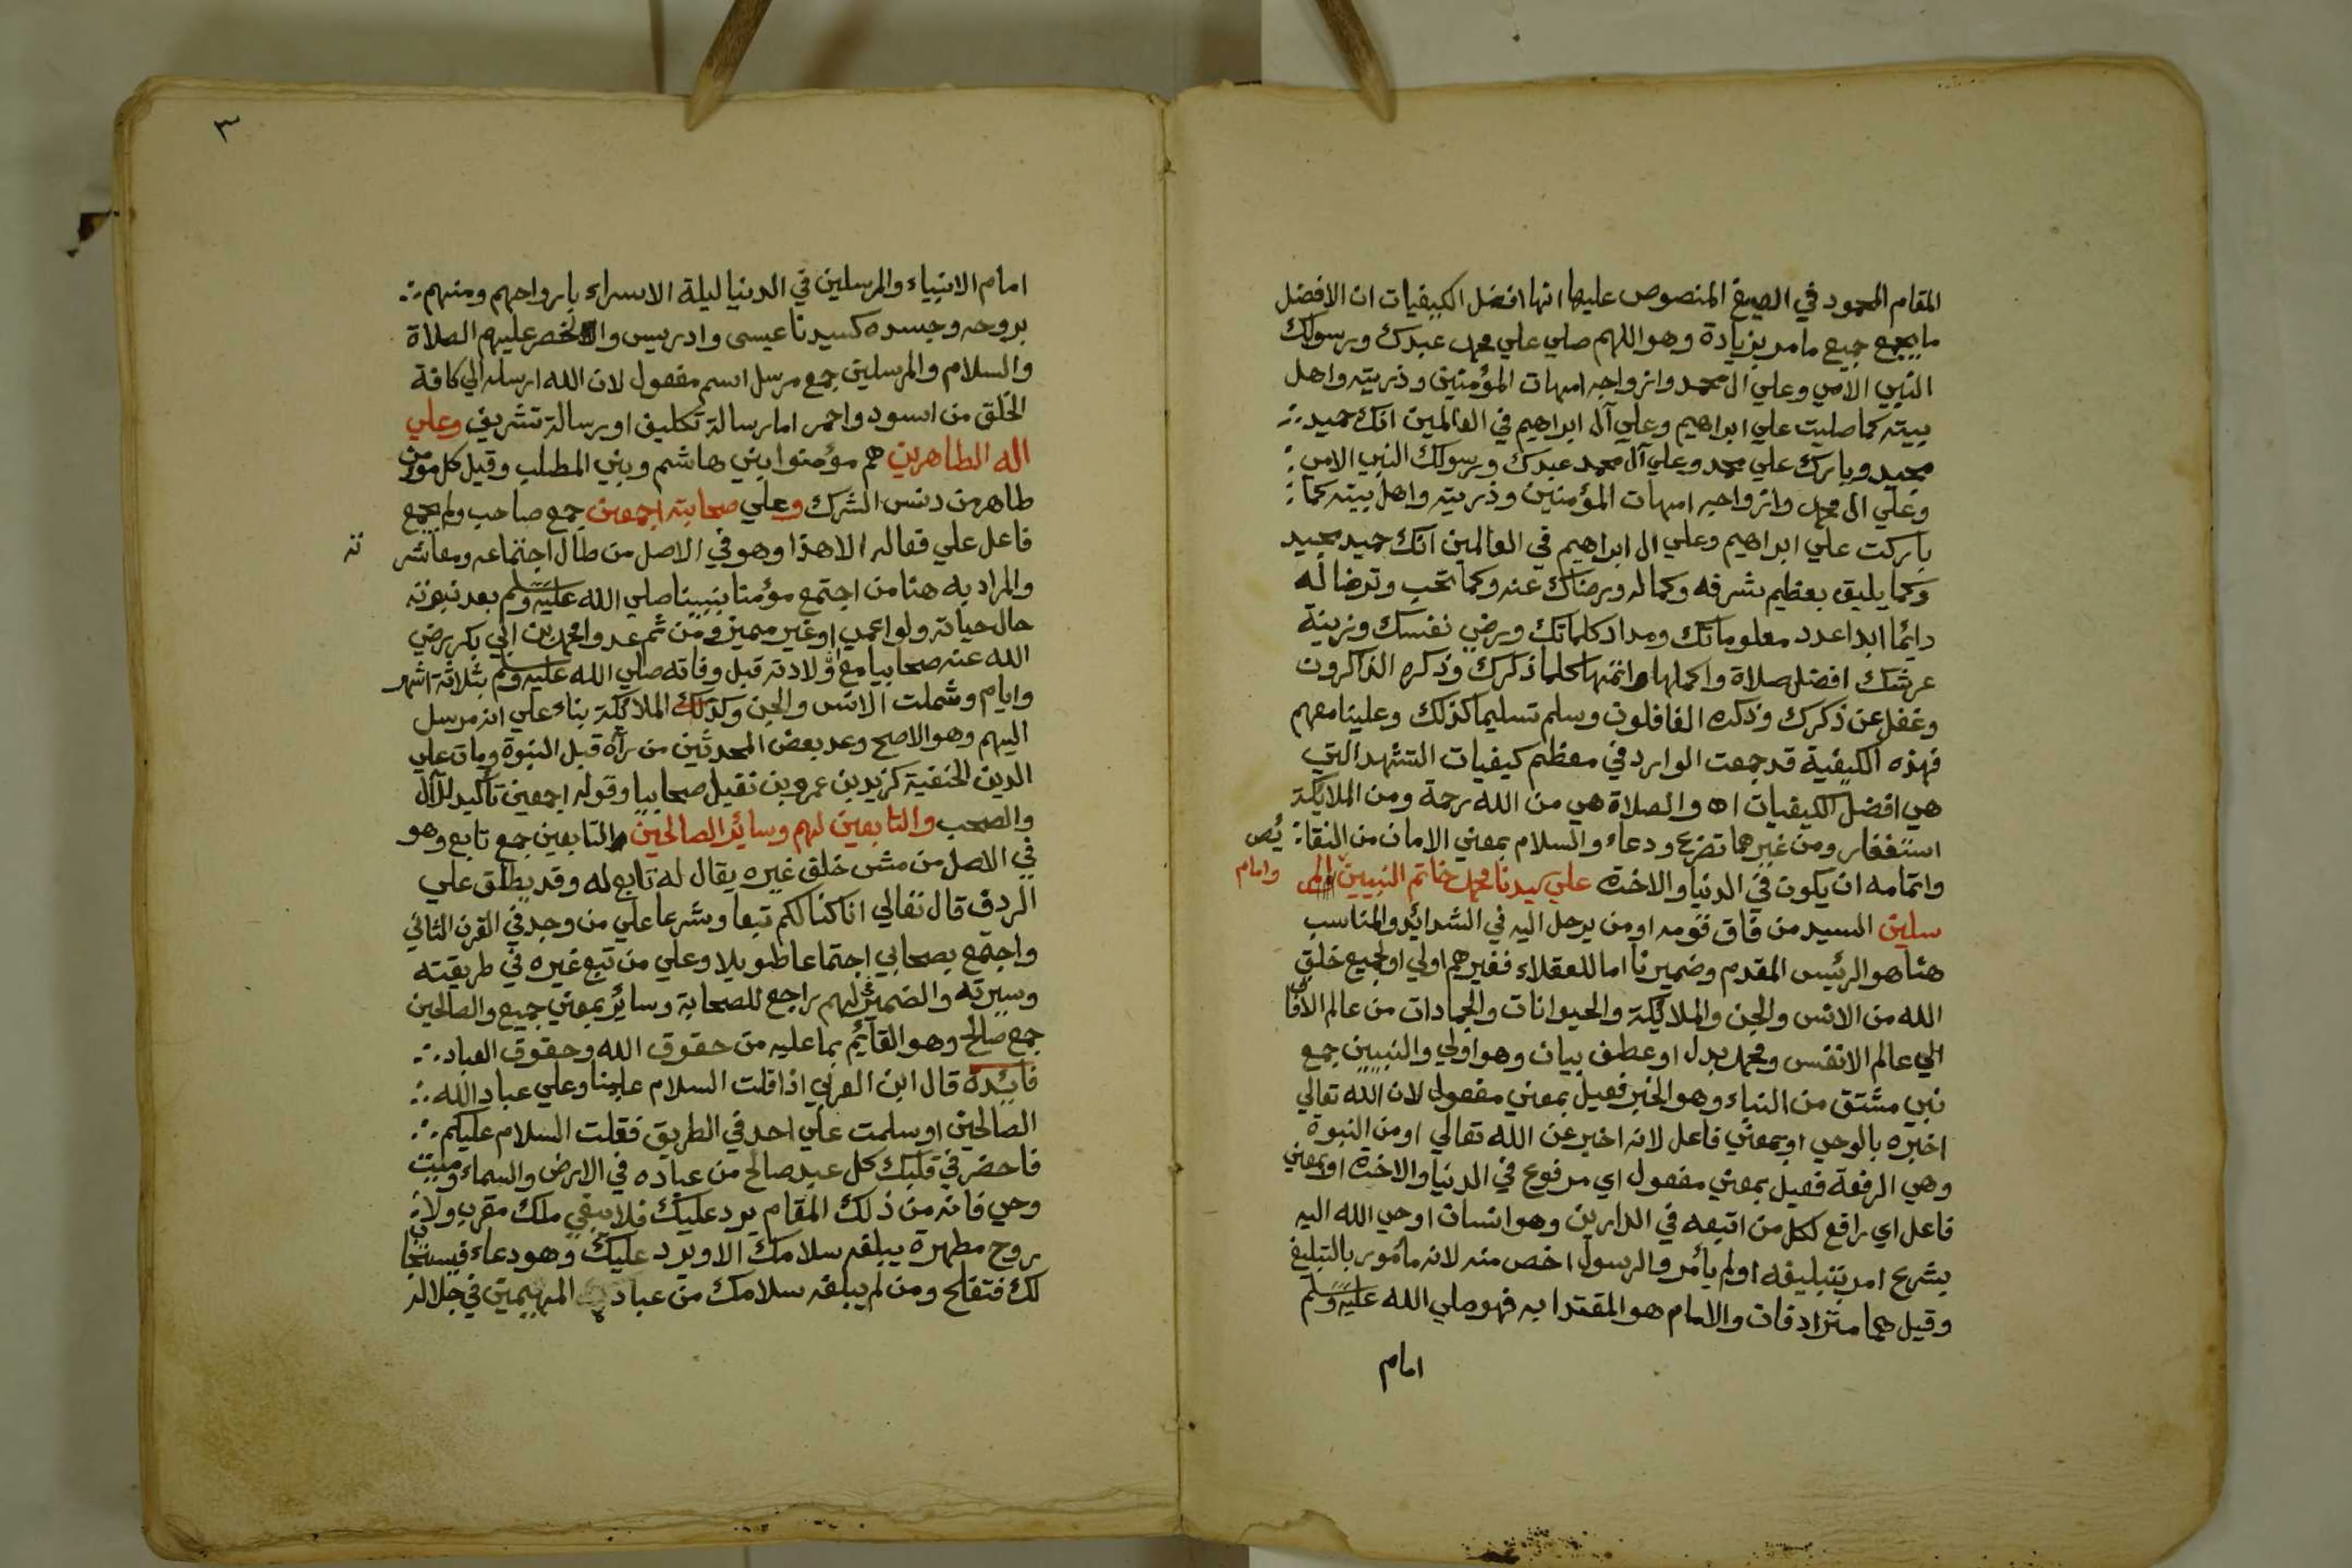 المقام المحمود في الصيغ المنصوص عليها انها افضل الكيفيات ان الافضل
ما يجمع جميع ما مر بزيادة وهو اللهم صلي علي محمد عبدك ورسولك
النبي الامي وعلي ال محمد وازواجه امهات المؤمنين وذريته واهل
بيته كما صليت علي ابراهيم وعلي آل ابراهيم في العالمين انك حميد
مجيد وبارك علي محمد وعلي آل محمد عبدك ورسولك النبي الامي
وعلي ال محمد وازواجه امهات المؤمنين وذريته واهل بيته كما
باركت علي ابراهيم وعلي ال ابراهيم في العالمين انك حميد مجيد
وكما يليق بعظيم شرفه وكماله ورضاك عنه وكما تحب وترضا له
دائما ابدا عدد معلوماتك ومداد كلماتك ورضي نفسك وزينة
عرشك افضل صلاة واكملها واتمها كلما ذكرك وذكره الذاكرون
وغفل عن ذكرك وذكره الغافلون وسلم تسليما كذلك وعلينا معهم
فهذه الكيفية قد جمعت الوارد في معظم كيفيات التشهد التي
هي افضل الكيفيات اه والصلاة هي من الله رحمة ومن الملايكة
استغفار ومن غيرهما تضرع ودعاء والسلام بمعني الامان من النقا يُص
واتمامه ان يكون في الدنيا والاخرة علي سيدنا محمد خاتم النبيين وامام المر
سلين السيد من فاق قومه او من يرحل اليه في الشدائد والمناسب
هنا هو الرئيس المقدم وضمير نا اما للعقلاء فغيرهم اولي او لجميع خلق
الله من الانس والجن والملايكة والحيوانات والجمادات من عالم الافاق
الي عالم الانفس ومحمد بدل او عطف بيان وهو اولي والنبيين جمع
نبي مشتق من النباء وهو الخبر فعيل بمعني مفعول لان الله تعالي
اخبره بالوحي او بمعني فاعل لانه اخبر عن الله تعالي او من النبوة
وهي الرفعة فعيل بمعني مفعول اي مرفوع في الدنيا والاخرة او بمعني
فاعل اي رافع لكل من اتبعه في الدارين وهو انسان اوحي الله اليه
بشرع امر بتبليغه او لم يأمر والرسول اخص منه لانه مأمور بالتبليغ
وقيل هما مترادفان والامام هو المقتدا به فهو صلي الله عليه وسلم
امام
٣
امام الانبياء والمرسلين في الدنيا ليلة الاسراء بارواحهم ومنهم
بروحه وجسده كسيدنا عيسي وادريس والخضر عليهم الصلاة
والسلام والمرسلين جمع مرسل اسم مفعول لان الله ارسله الي كافة
الخلق من اسود واحمر اما رسالة تكليف او رسالة تشريف وعلي
اله الطاهرين هم مؤمنوا بني هاشم وبني المطلب وقيل كل مؤمن
طاهر من دنس الشرك وعلي صحابته اجمعين جمع صاحب ولم يجمع
فاعل علي فعاله الا هذا وهو في الاصل من طال اجتماعه ومعاشر ته
والمراد به هنا من اجتمع مؤمنا بنبينا صلي الله عليه وسلم بعد نبوته
حال حياته ولو اعمي او غير مميز ومن ثم عدوا محمد بن ابي بكر رضي
الله عنه صحابيا مع ولادته قبل وفاته صلي الله عليه وسلم بثلاثة اشهر
وايام وشملت الانس والجن وكذلك الملايكة بناء علي انه مرسل
اليهم وهو الاصح وعد بعض المحدثين من رآه قبل النبوة ومات علي
الدين الحنفية كزيد بن عمرو بن نفيل صحابيا وقوله اجمعين تأكيد للآل
والصحب والتابعين لهم وسائر الصالحين والتابعين جمع تابع وهو
في الاصل من مشي خلق غيره يقال له تابع له وقد يطلق علي
الردف قال تعالي انا كنا لكم تبعا وشرعا علي من وجد في القرن الثاني
واجتمع بصحابي اجتماعا طويلا وعلي من تبع غيره في طريقته
وسيرته والضمير لهم راجع للصحابة وسائر بمعني جميع والصالحين
جمع صالح وهو القائم بما عليه من حقوق الله وحقوق العباد
فائدة قال ابن العربي اذا قلت السلام علينا وعلي عباد الله
الصالحين او سلمت علي احد في الطريق فقلت السلام عليكم
فاحضر في قلبك كل عبد صالح من عباده في الارض والسماء وميت
وحي فانه من ذلك المقام يرد عليك فلا يبقي ملك مقرب ولا
روح مطهرة يبلغه سلامك الا ويرد عليك وهو دعاء فيستجاب
لك فتفلح ومن لم يبلغه سلامك من عباد المهيمين في جلاله